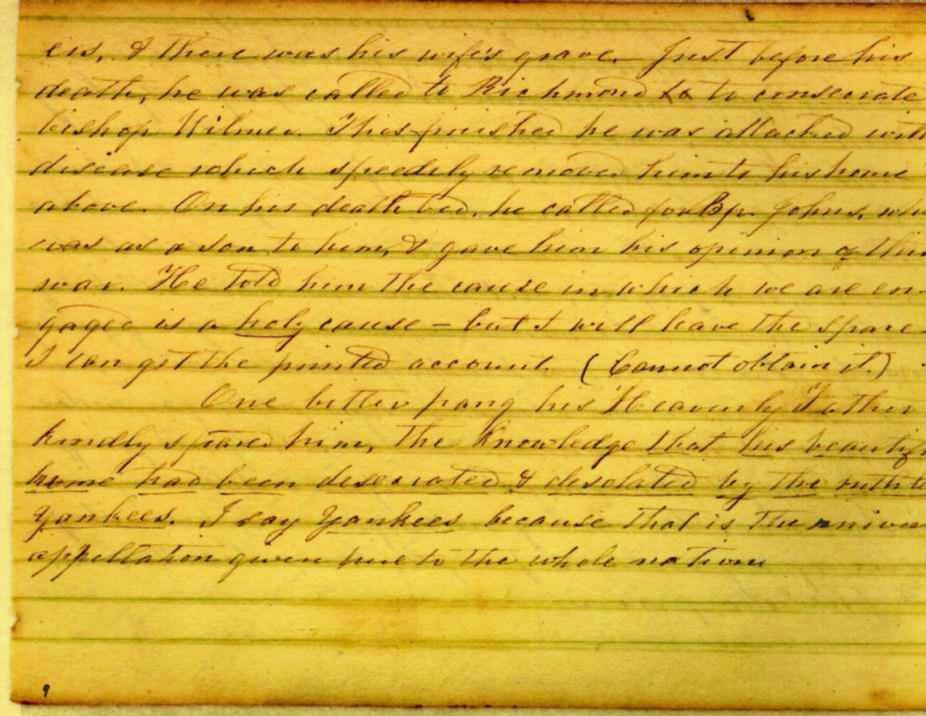 ers, & there was his wife's grave. Just before his
death, he was called to Richmond to to consecrate
bishop Wilmer. This finished he was attacked with
disease which speedily removed him to his home
above. On his death bed, he called for Bp. Johns, who
was as a son to him, & gave him his opinion of this
war. He told him the cause in which we are en-
gaged is a holy cause – but I will leave the space
I can get the printed account. (Cannot obtain it.)
One bitter pang his Heavenly Father
kindly spared him, the knowledge that his beautif
home had been desecrated & desolated by the ruthle
Yankees. I say Yankees because that is the univer
appellation given here to the whole nation
9